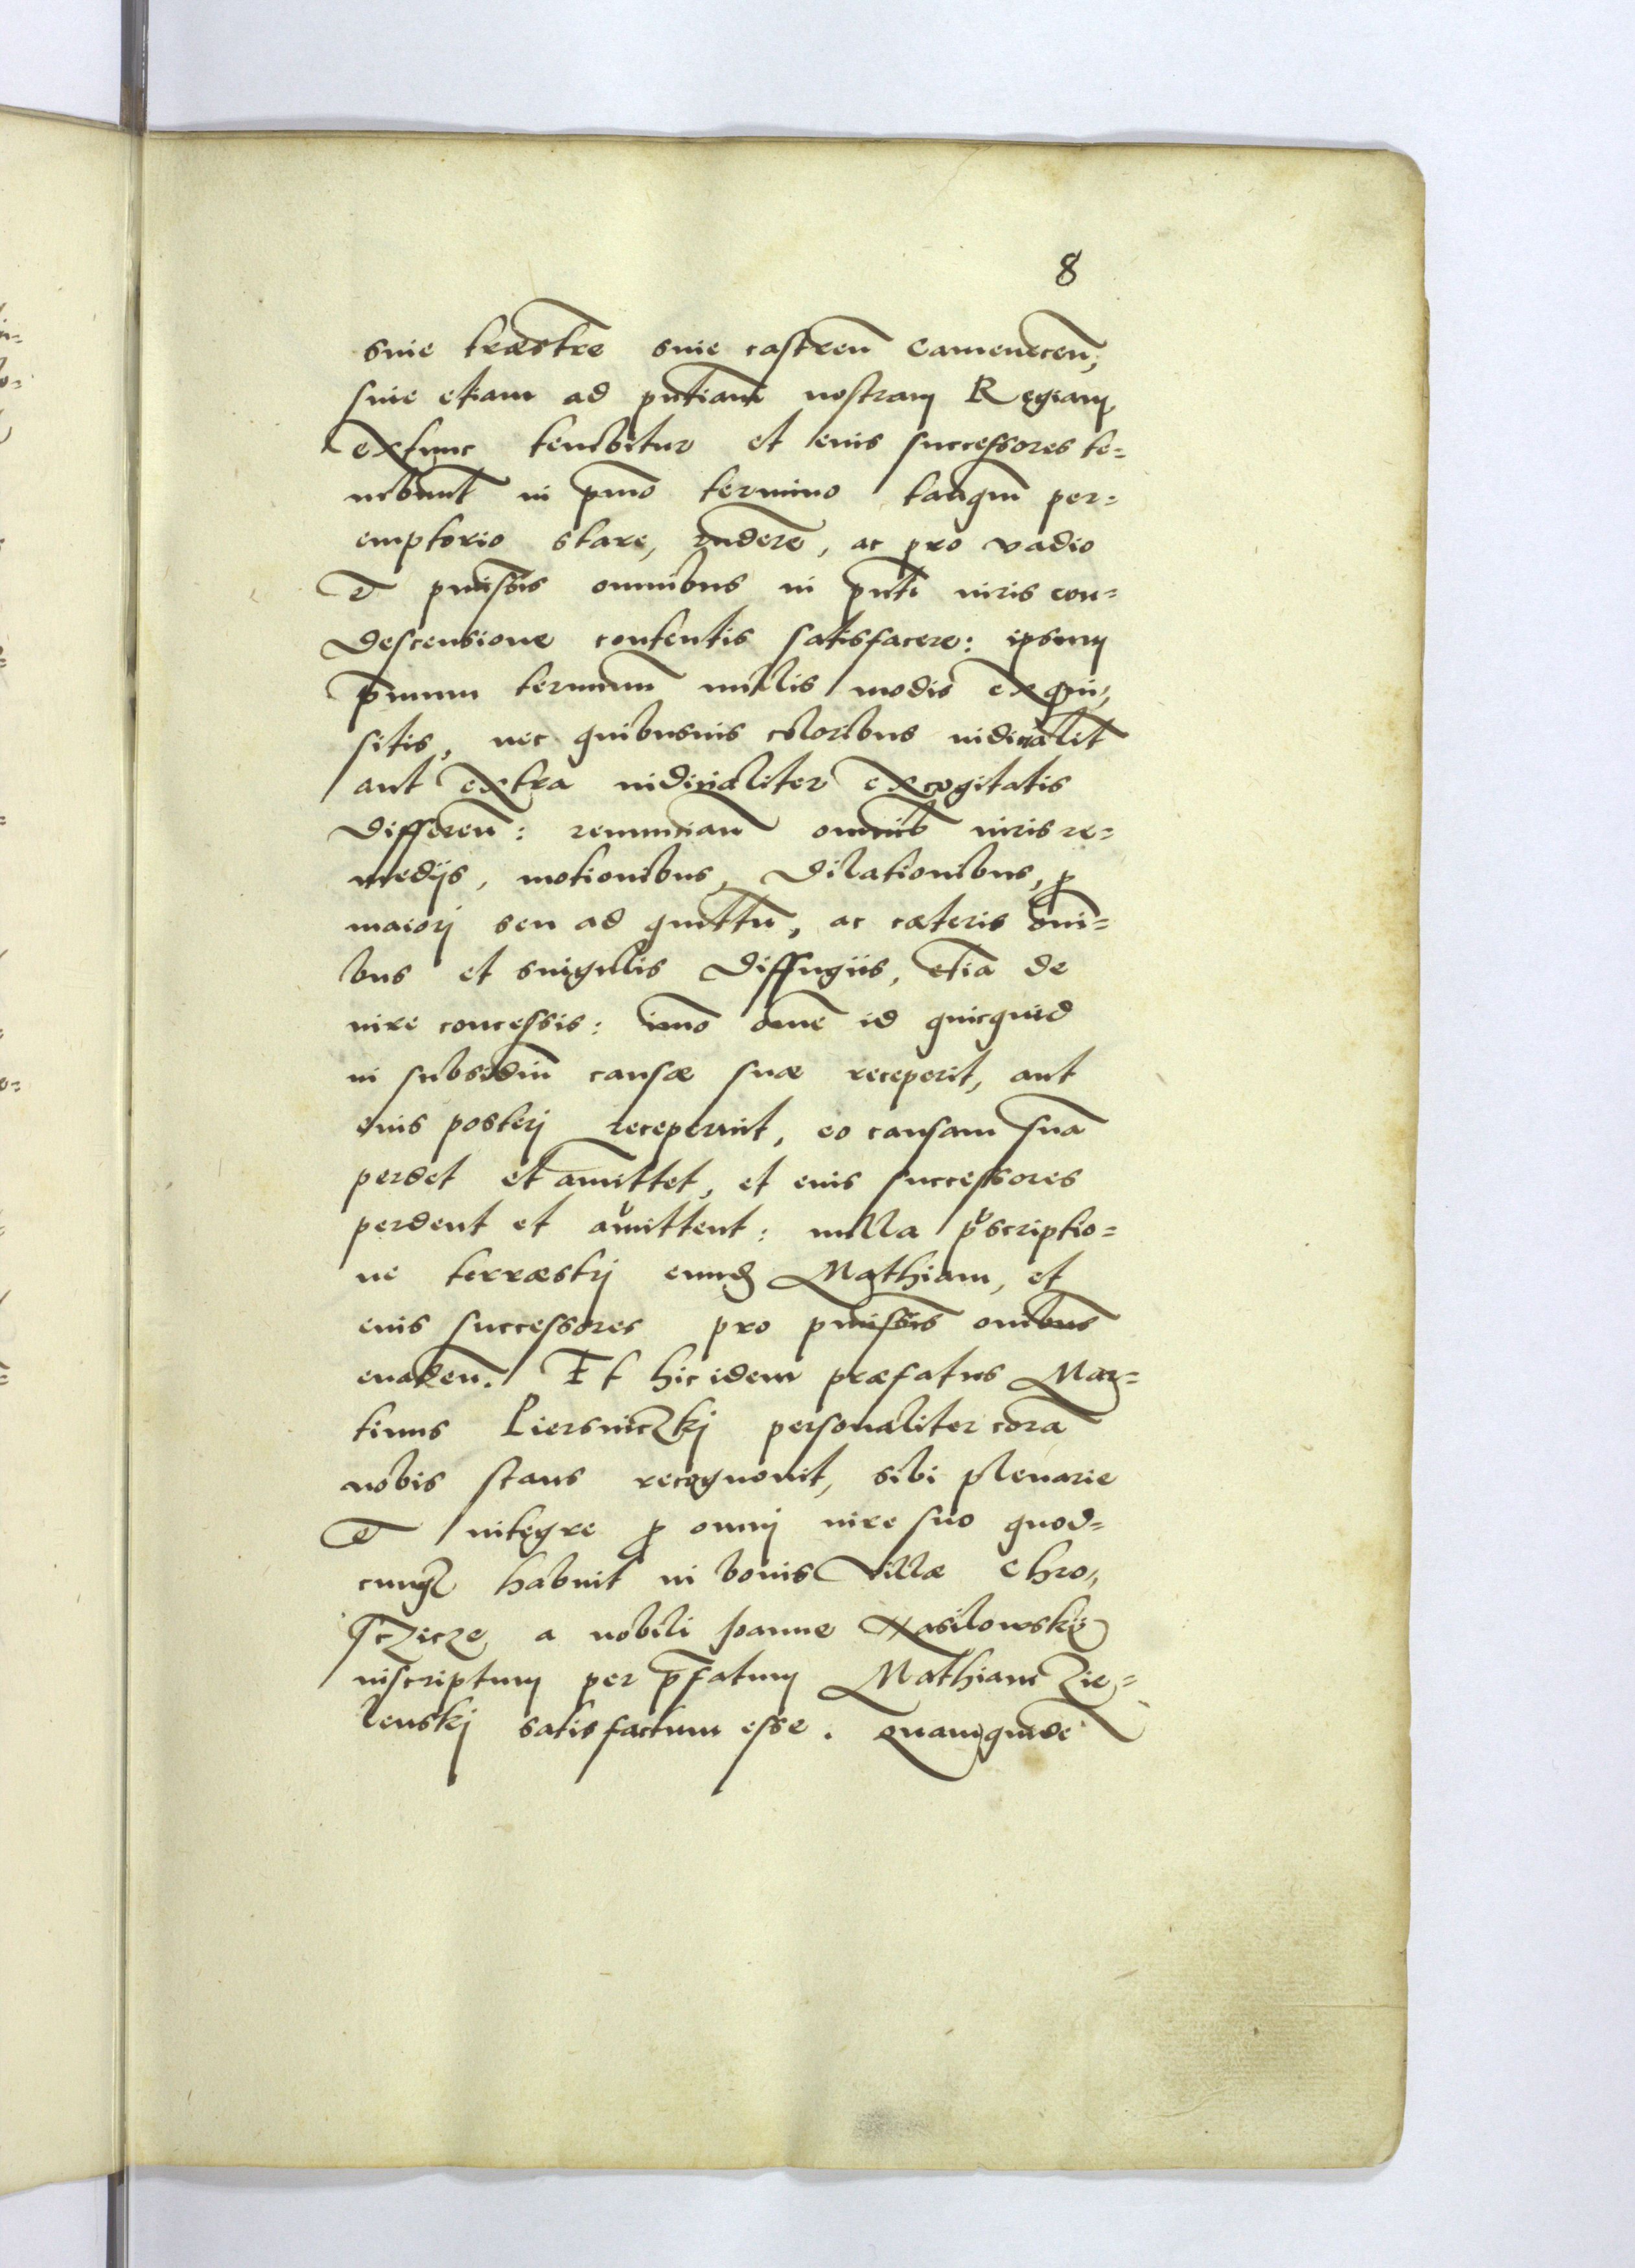 8
siue træstre siue castren̄ Camenecen̄,
siue etiam ad pntiam̄ nostram Regiam,
extunc tenebitur et eius successores te=
nebunt̄ in pmo̅ termino tanqm̄ per=
emptorio stare, rndere̅, ac pro vadio
et pmissis̅ omnibus in pnti̅ iuris con=
descensione contentis satisfacere: ipsum
p̅mum terminum̄ nullis modis exqui,,
sitis, nec quibusuis coloribus iudicialit̄
aut extra iudicialiter excogitatis
differen̄: renuncian̄ omnib̄ iuris re=
medijs, motionibus, dilationibus, ꝓ
maiorj seu ad quittn̄, ac cæteris om̄i=
bus et singulis diffugiis, etia̅ de
iure concessis: imo̅ omne̅ id quicquid
in subsidiu̅ causæ suæ receperit, aut
eius posterj receperint, eo causam sua̅
perdet et amittet, et eius successores
perdent et amittent: nulla p̅scriptio=
ne terræstrj eund Mathiam, et
eius successores pro pmissis̅ omibus̅
euaden̄. Et hic idem præfatus Mar=
tinus Piersniczkj personaliter cora̅
nobis stans recognouit, sibi plenarie
et integre ꝓ omnj iure suo quod=
cunqꝫ habuit in bonis villæ Chro,,
sczicze a nobili Joanne Xasilowskij
inscriptum per p̅fatum Mathiam Zie=
lenskj satisfactum esse. Quamquide̅